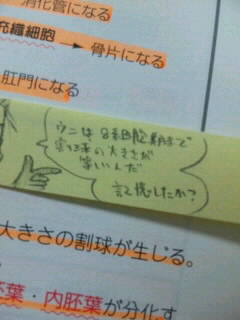 消化管になる
充織細胞 → 骨片になる
肛門になる
ウニは8細胞期まで
割球の大きさが
等しいんだ
記憶したか?
大きさの割球が生じる。
胚葉・内胚葉が分化す